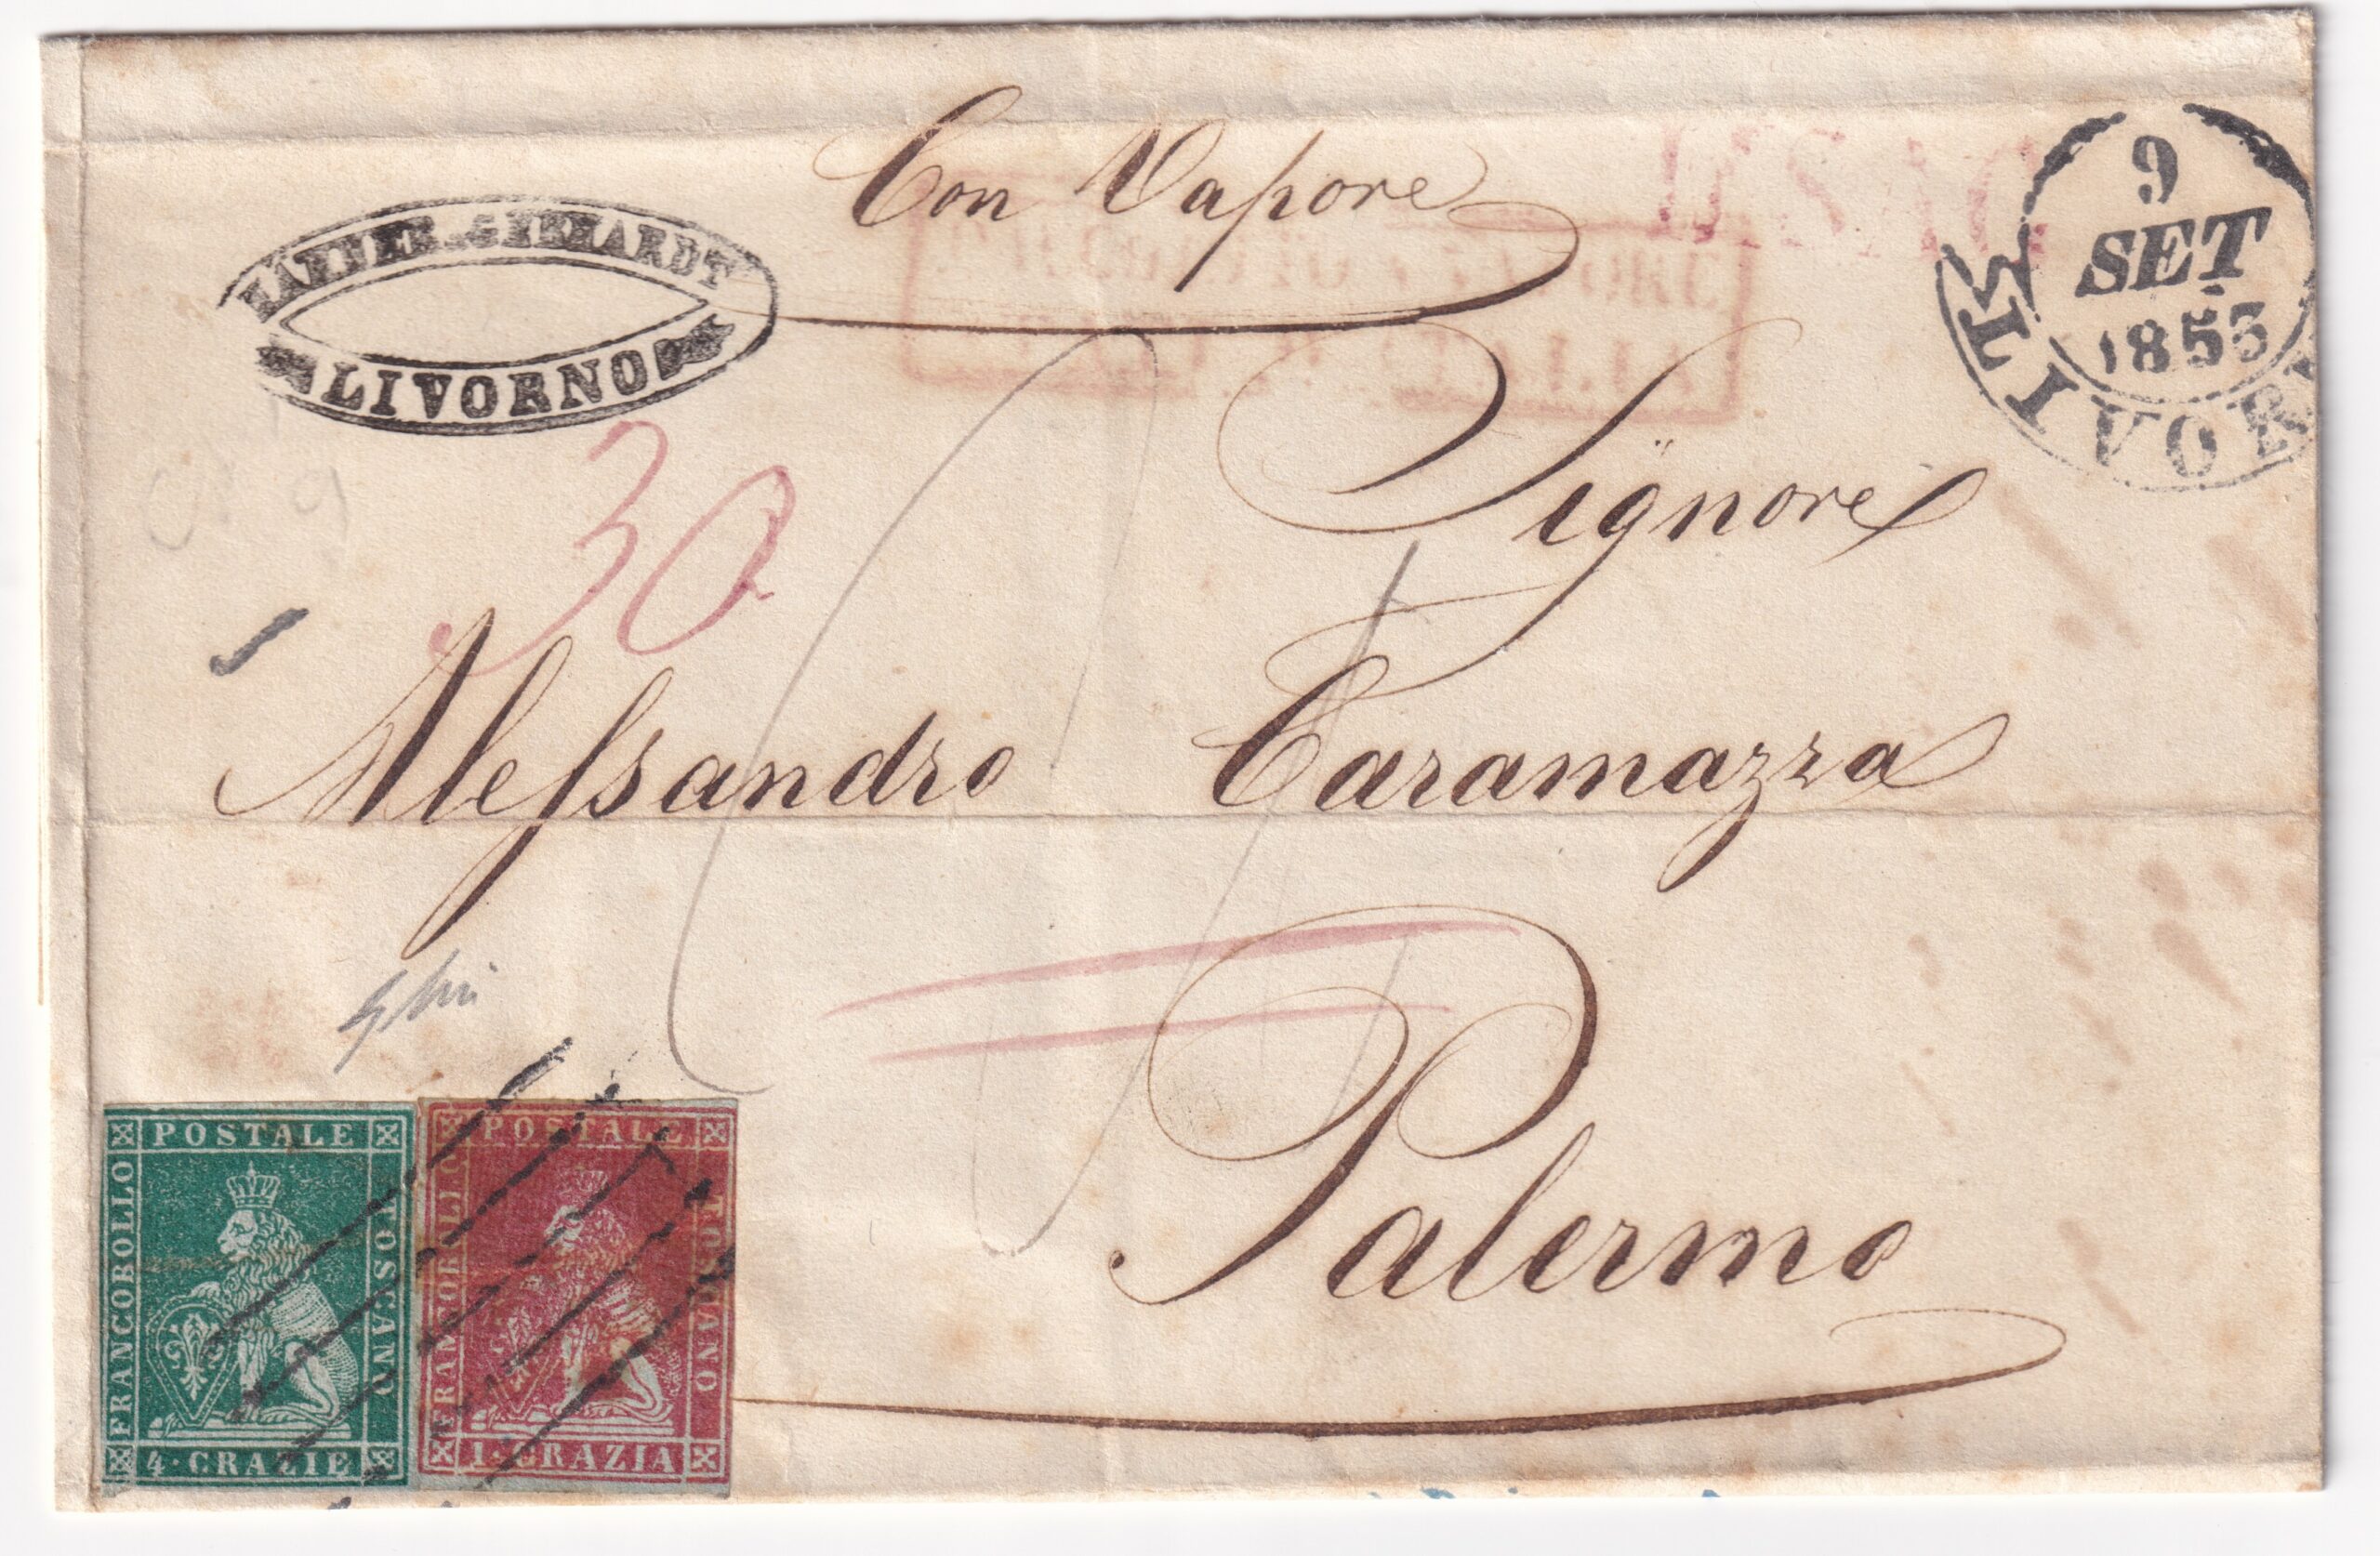 Con Vapore
LIVORNO
9
SET
1853
LIVOR
30
Signore
Alessandro Caramazza
Palermo
POSTALE
FRANCOBOLLO
TOSCANO
4·CRAZIE
POSTALE
FRANCOBOLLO
TOSCANO
1·CRAZIA